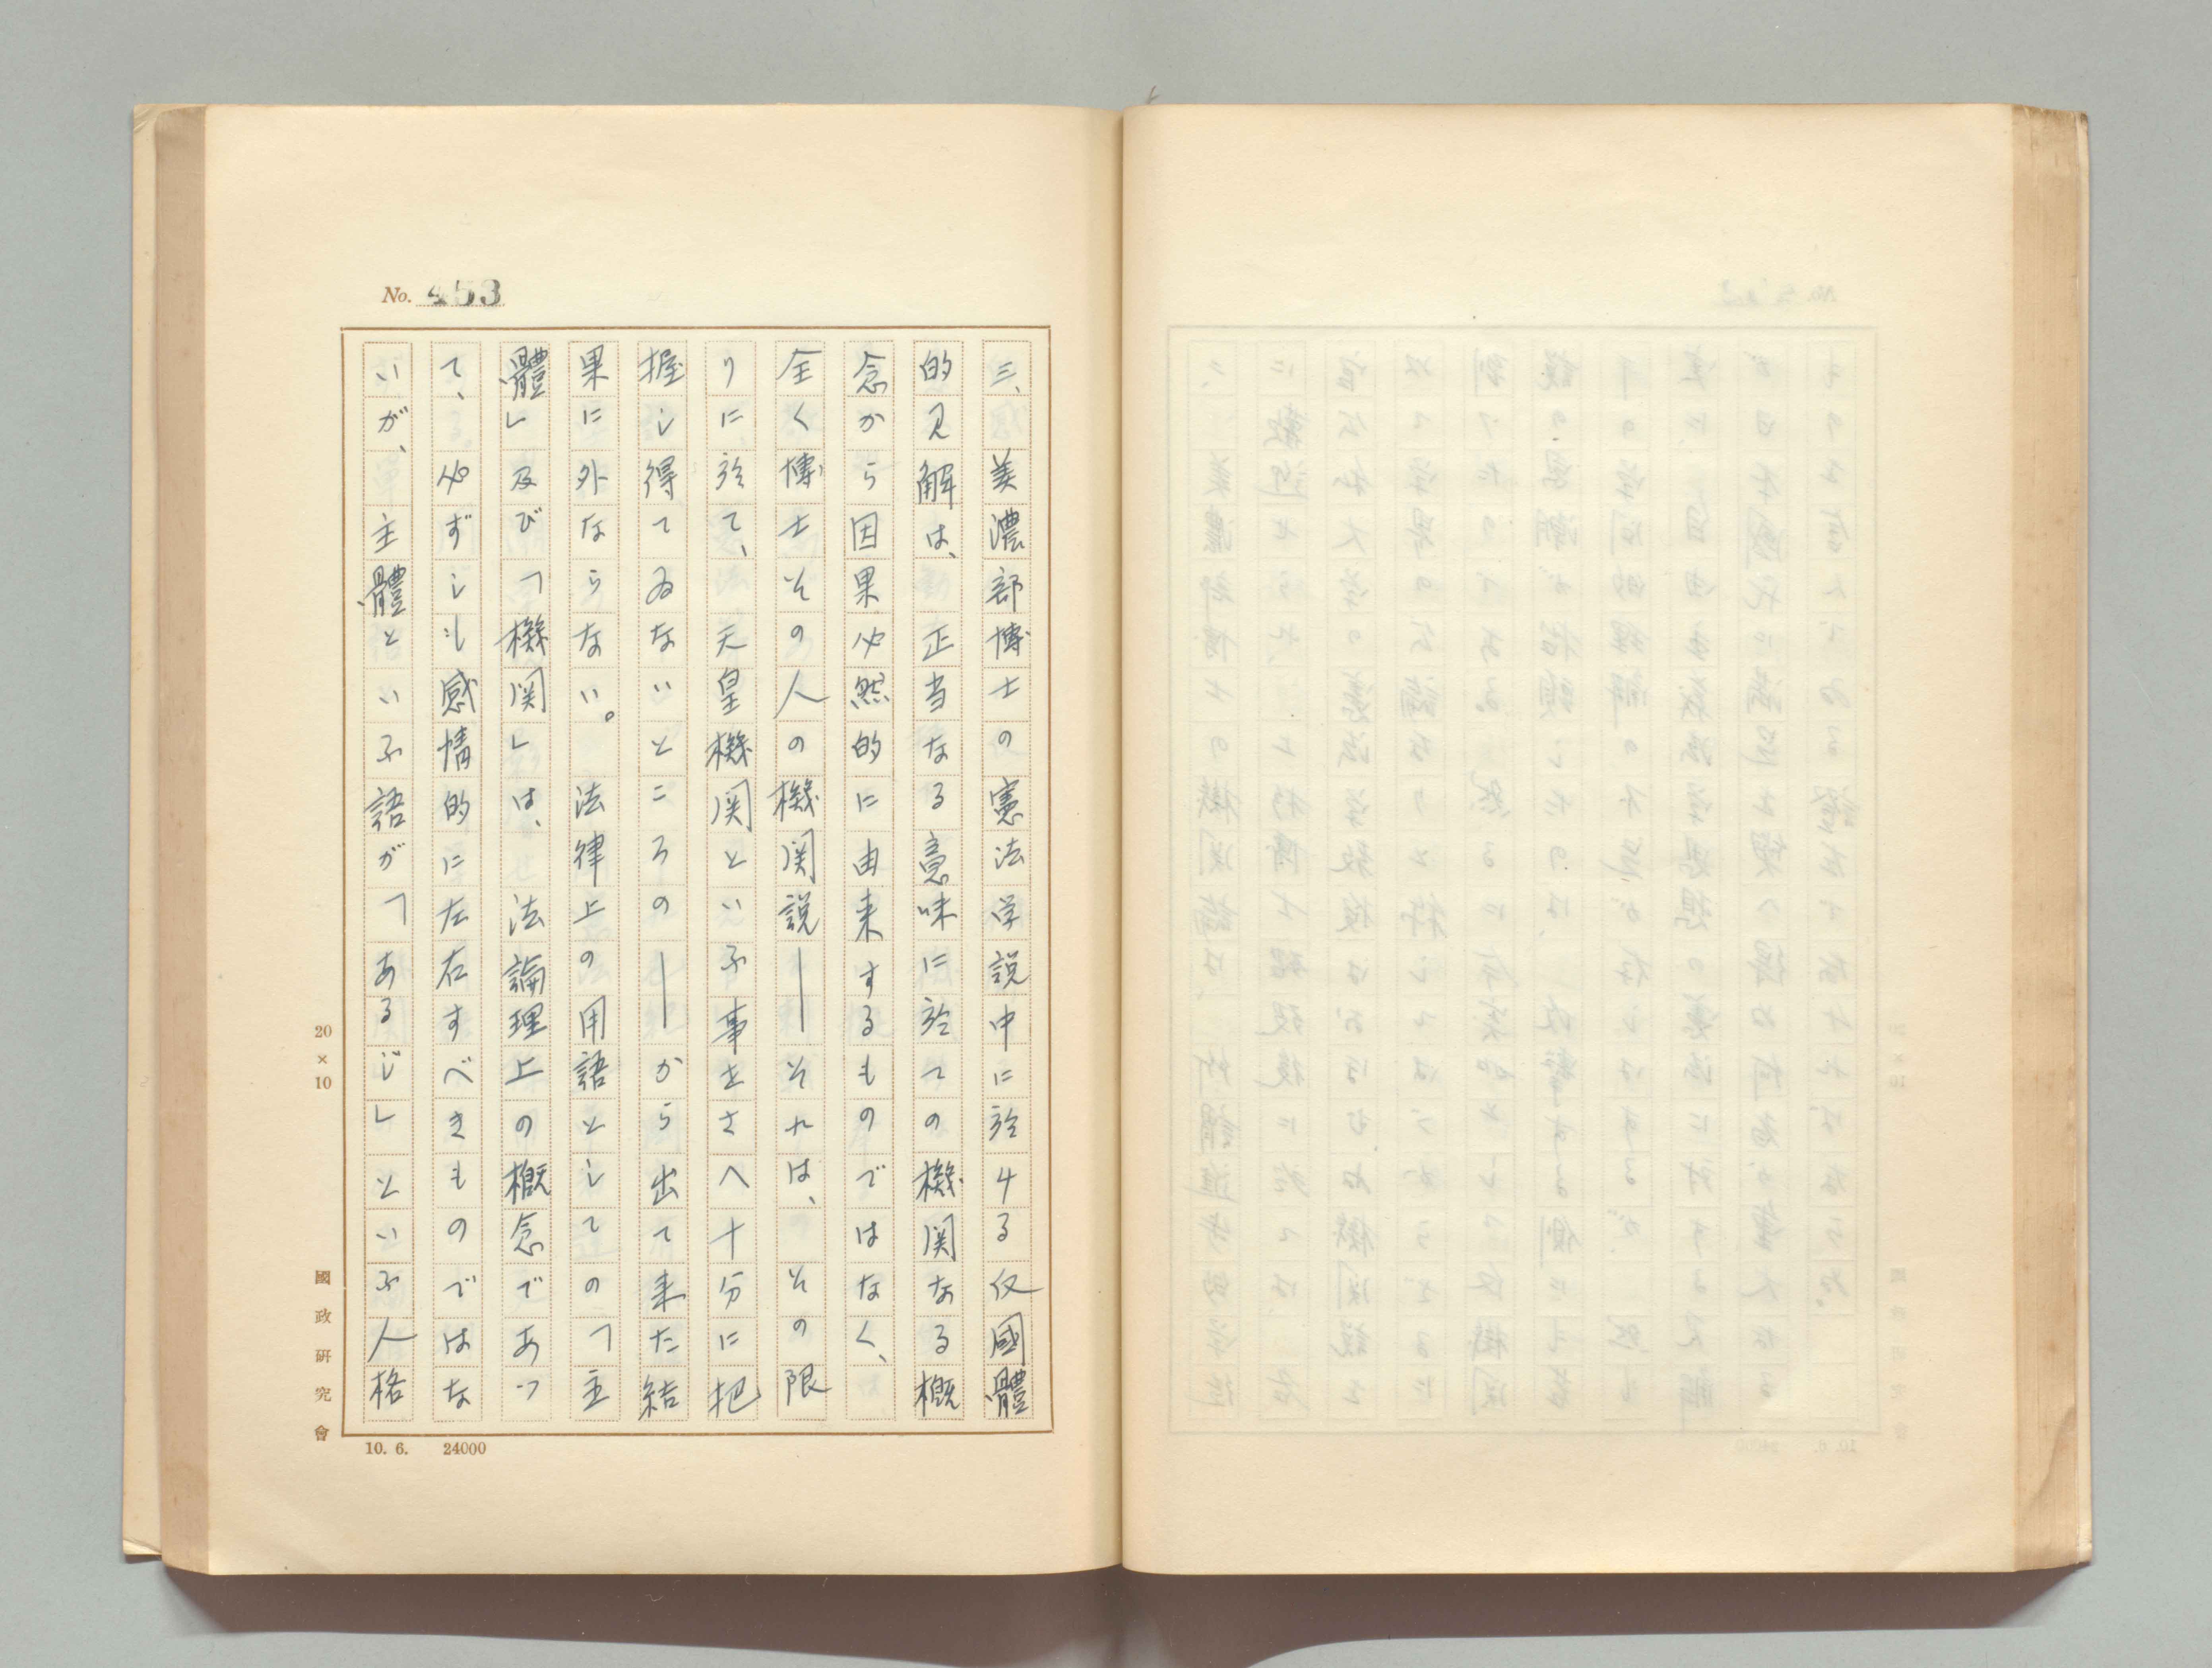 No. 453
三、美濃部博士の憲法学説中に於ける反國體
的見解は、正当なる意味に於ての機関なる概
念から因果必然的に由来するものではなく、
全く博士その人の機関説――それは、その限
りに於て、天皇機関といふ事をさへ十分に把
握し得てゐないところの――から出て来た結
果に外ならない。法律上の用語としての「主
體」及び「機関」は、法論理上の概念であつ
て、必ずしも感情的に左右すべきものではな
いが、主體といふ語が「あるじ」といふ人格
20×10
國政研究會
10. 6. 24000